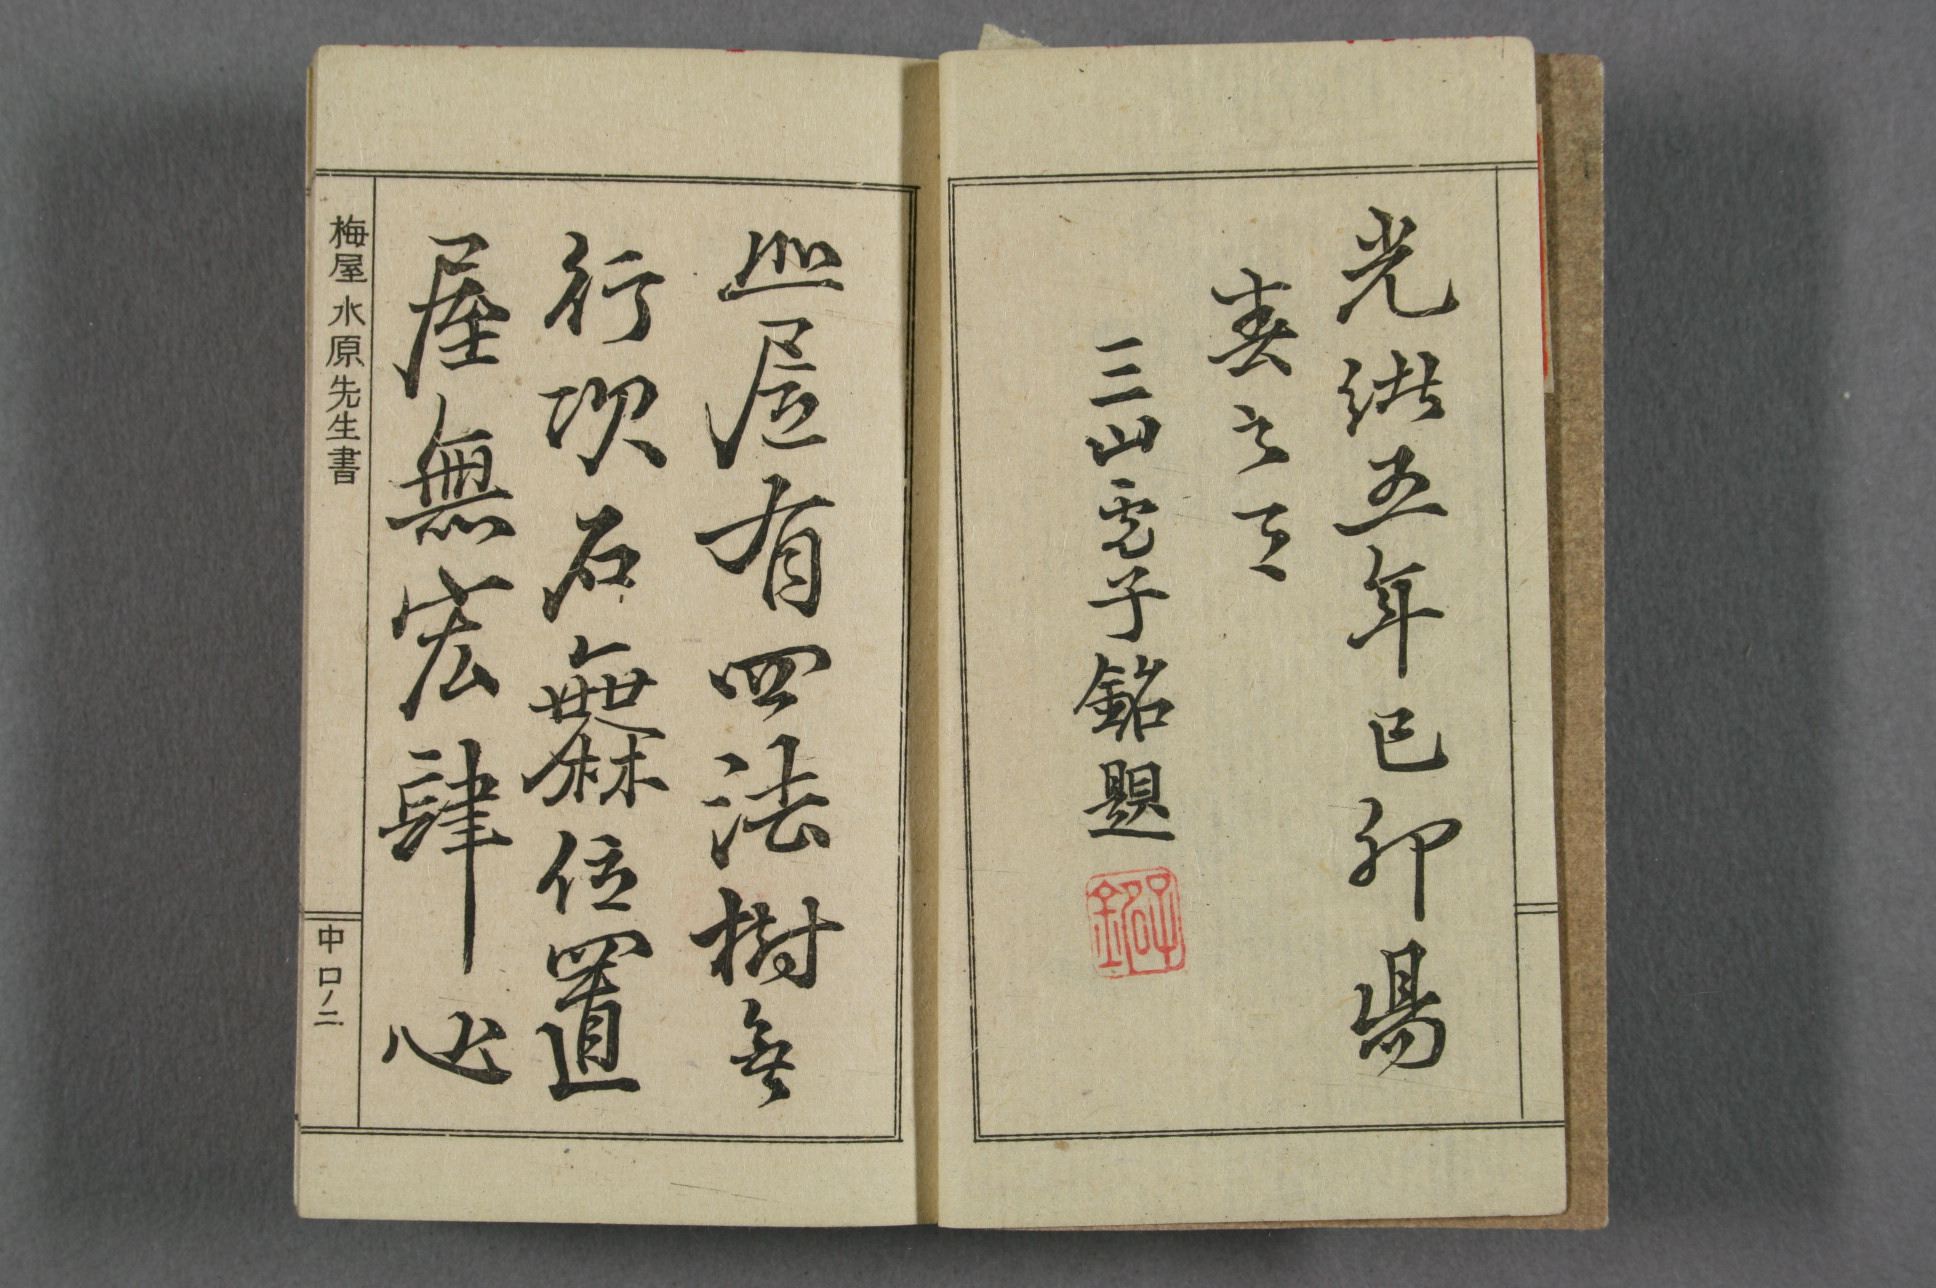 光緒五年己卯昜
春之下
三山子銘題
子銘
山居有四法樹無
行次石橆位置
屋無宏肆心
梅屋水原先生書
中ロノ二